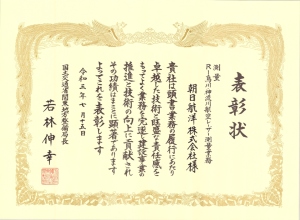 表彰状
測量
R1烏川神流川航空レーザ測量業務
朝日航洋株式会社様
貴社は頭書業務の履行にあたり
卓越した技術と旺盛な責任感を
もってよく業務を完遂し建設事業の
推進と技術の向上に貢献され
その功績はまことに顕著であります
よってこれを表彰します
令和三年七月十五日
国土交通省関東地方整備局長
若林伸幸